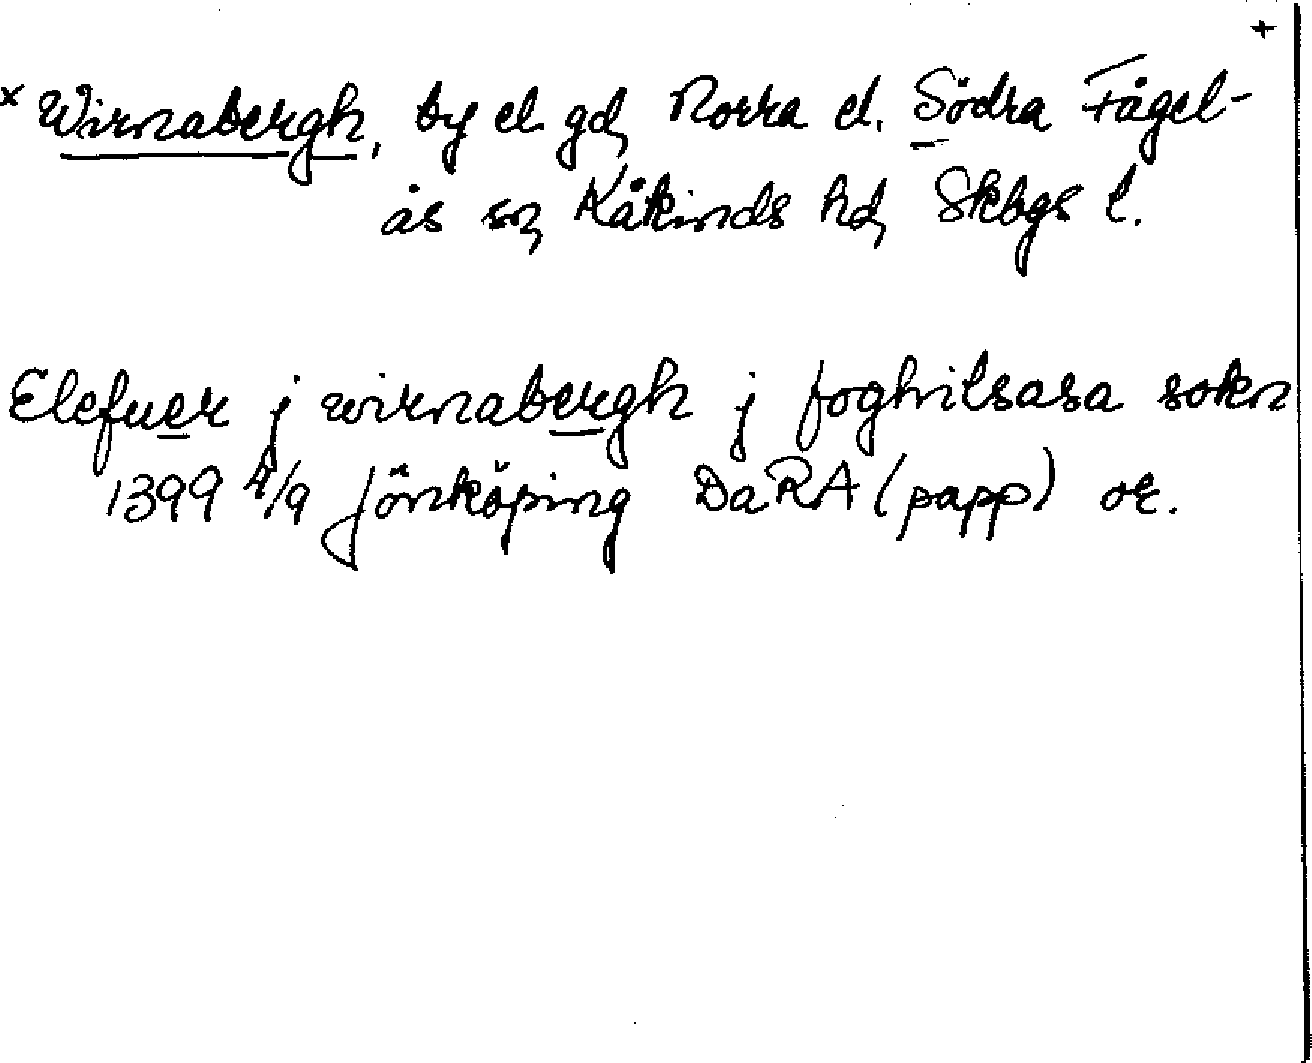 +
× Wirnabergh, by el. gd, Norra el. Södra Fågel-
ås sn, Kåkinds hd, Skbgs l.
Elefuer j wirnabergh j foghilsasa sokn
1399 4/9 Jönköping DaRA (papp) or.